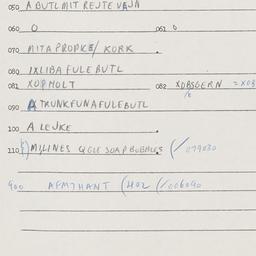 050 A BUTLMIT REJTE VAJA
060 O 061 O
070 MITAPROPKE/ KORK
080 IXLIBAFULE BUTL
081 XOPHOLT 082 XOBSGERN = XOB
090 A TXUNKFUNAFULEBUTL
100 A LEJKE
110 MJLINES QGLE SOAP BUBBLES (/079030
900 AFMTHANT (402 (/006090